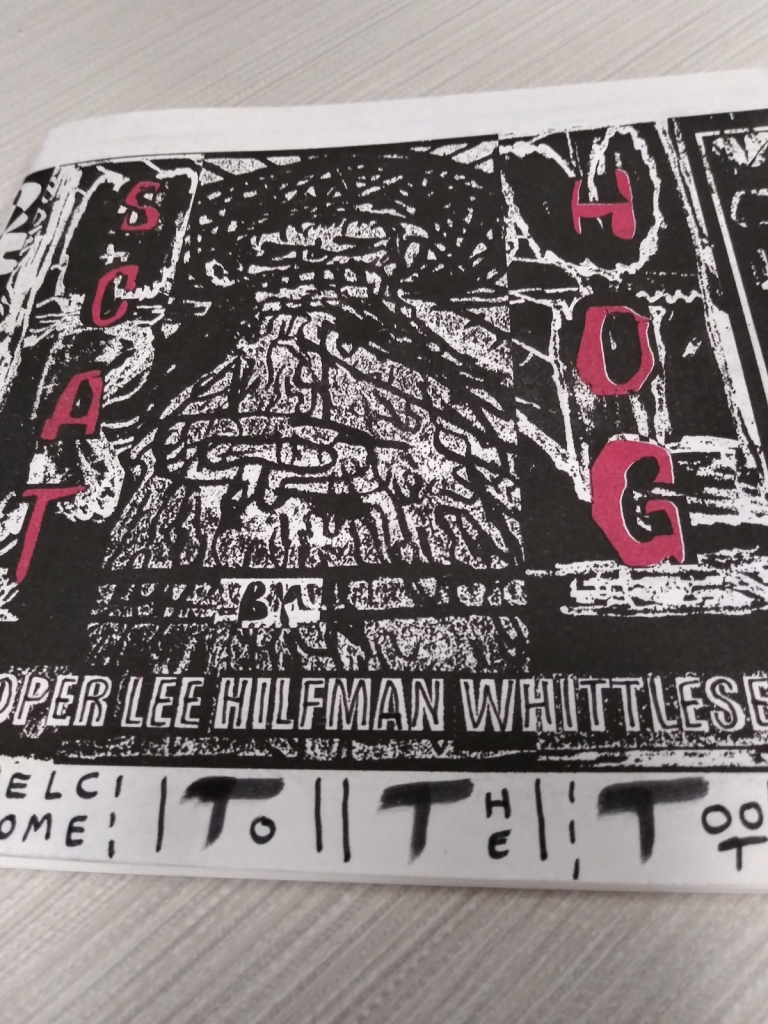 SCAT
HOG
BM
OPER LEE HILFMAN WHITTLESE
ELC
OME
TO
THE
TOOT